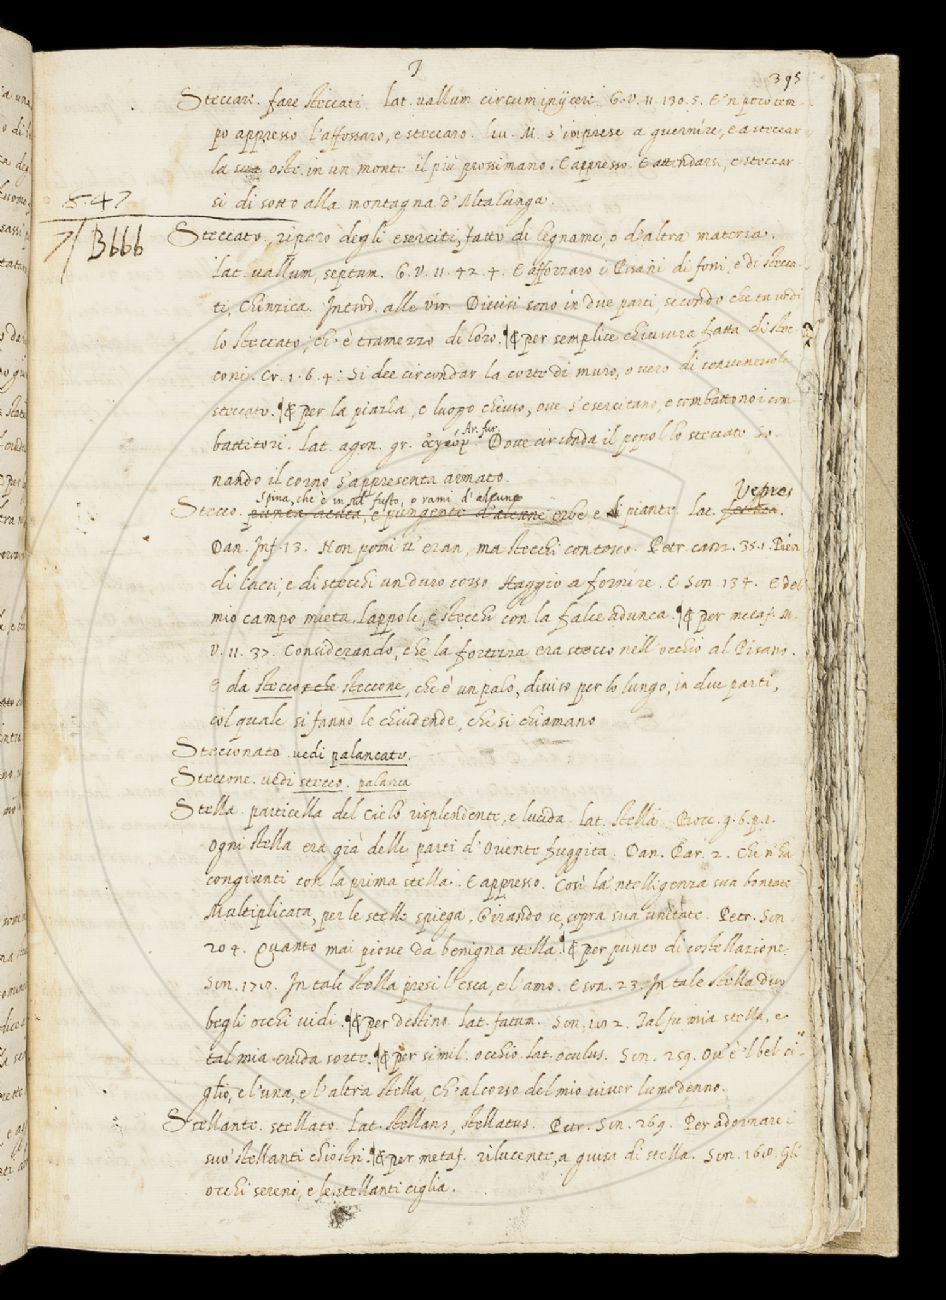 395
Steccare. fare steccati. lat. vallum circuminijcere. G.V. 11. 130. 5. E 'n poco tem-
po appresso l'affossaro, e steccaro. Liv. M. s'imprese a guernire, e a steccar
la sua oste in un monte il più prossimano. E appresso. E attendarsi, e steccar-
si di sotto alla montagna d'Altalunga.
847
7 Bbbb
Steccato, riparo degli eserciti, fatto di legname, o d'altra materia.
lat. vallum, septum. G.V. 11. 42. 4. E afforzaro i Pisani di fossi, e di stecca-
ti, Chinzica. Introd. alle vir. Divisi sono in due parti, secondo che tu vedi
lo steccato, ch'è tramezzo di loro. ¶ E per semplice chiusura fatta di stec-
coni. Cr. 1. 6. 4: Si dee circondar la corte di muro, o vero di convenevole
steccato. ¶ E per la piazza, e luogo chiuso, ove s'esercitano, e combattono i com-
battitori. lat. agon. gr. ἀγών. Ar. fur. Dove circonda il popol lo steccato So-
nando il corno s'appresenta armato.
Spina, che è in sul fusto, o rami d'alcune Vepres
Stecco. punta acuta, e pungente d'alcune erbe e di piante. lat.
Dan. Inf. 13. Non pomi v'eran, ma stecchi con tosco. Petr. canz. 35. 1. Pien
di lacci, e di stecchi un duro corso Haggio a fornire. E Son. 134. E del
mio campo mieta Lappole, e stecchi con la falce adunca. ¶ E per metaf. M.
V. 11. 37. Considerando, che la fortezza era stecco nell'occhio al Pisano.
E da stecco steccone, che è un palo, diviso per lo lungo, in due parti,
col quale si fanno le chiudende, che si chiamano
Stecconato. vedi palancato.
Steccone. vedi stecco. palanca
Stella. particella del Cielo risplendente, e lucida. lat. stella. Bocc. g. 6. p. 1.
Ogni stella era già delle parti d'Oriente fuggita. Dan. Par. 2. Che n'ha
congiunti con la prima stella. E appresso. Così la 'ntelligenza sua bontate
Multiplicata, per le stelle spiega, Girando se, sopra sua unitate. Petr. Son.
204. Quanto mai piove da benigna stella. ¶ E per punto di costellazione.
Son. 170. In tale stella presi l'esca, e l'amo. E son. 23. In tale stella duo
begli occhi vidi. ¶ E per destino. lat. fatum. Son. 182. Tal fu mia stella, e
tal mia cruda sorte. ¶ E per simil. occhio. lat. oculus. Son. 259. Ov'è 'l bel ci-
glio, e l'una, e l'altra stella, Ch'al corso del mio viver lume denno.
Stellante. stellato. lat. stellans, stellatus. Petr. Son. 269. Per adornare i
suo' stellanti chiostri. ¶ E per metaf. rilucente, a guisa di stella. Son. 160. Gli
occhi sereni, e le stellanti ciglia.